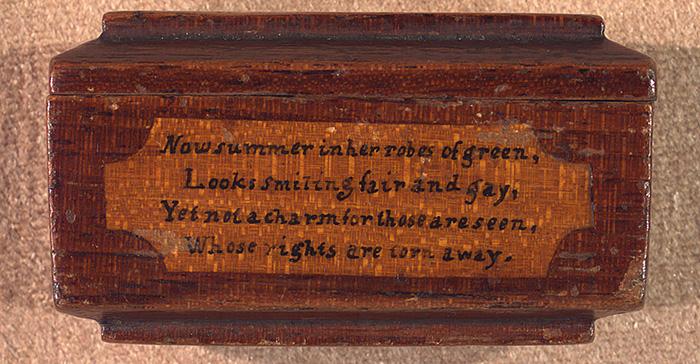 Now summer in her robes of green,
Looks smiling fair and gay,
Yet not a charm for those are seen,
Whose rights are torn away.